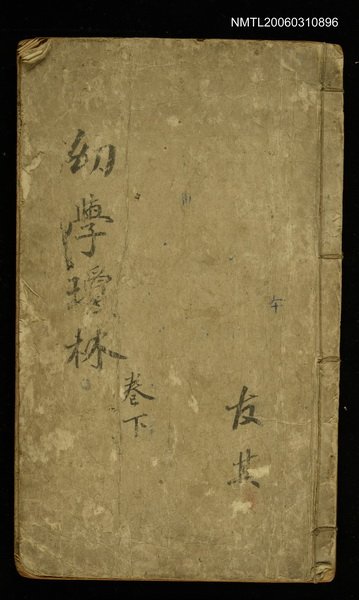 NMTL20060310896
幼學瓊林
卷下
友其